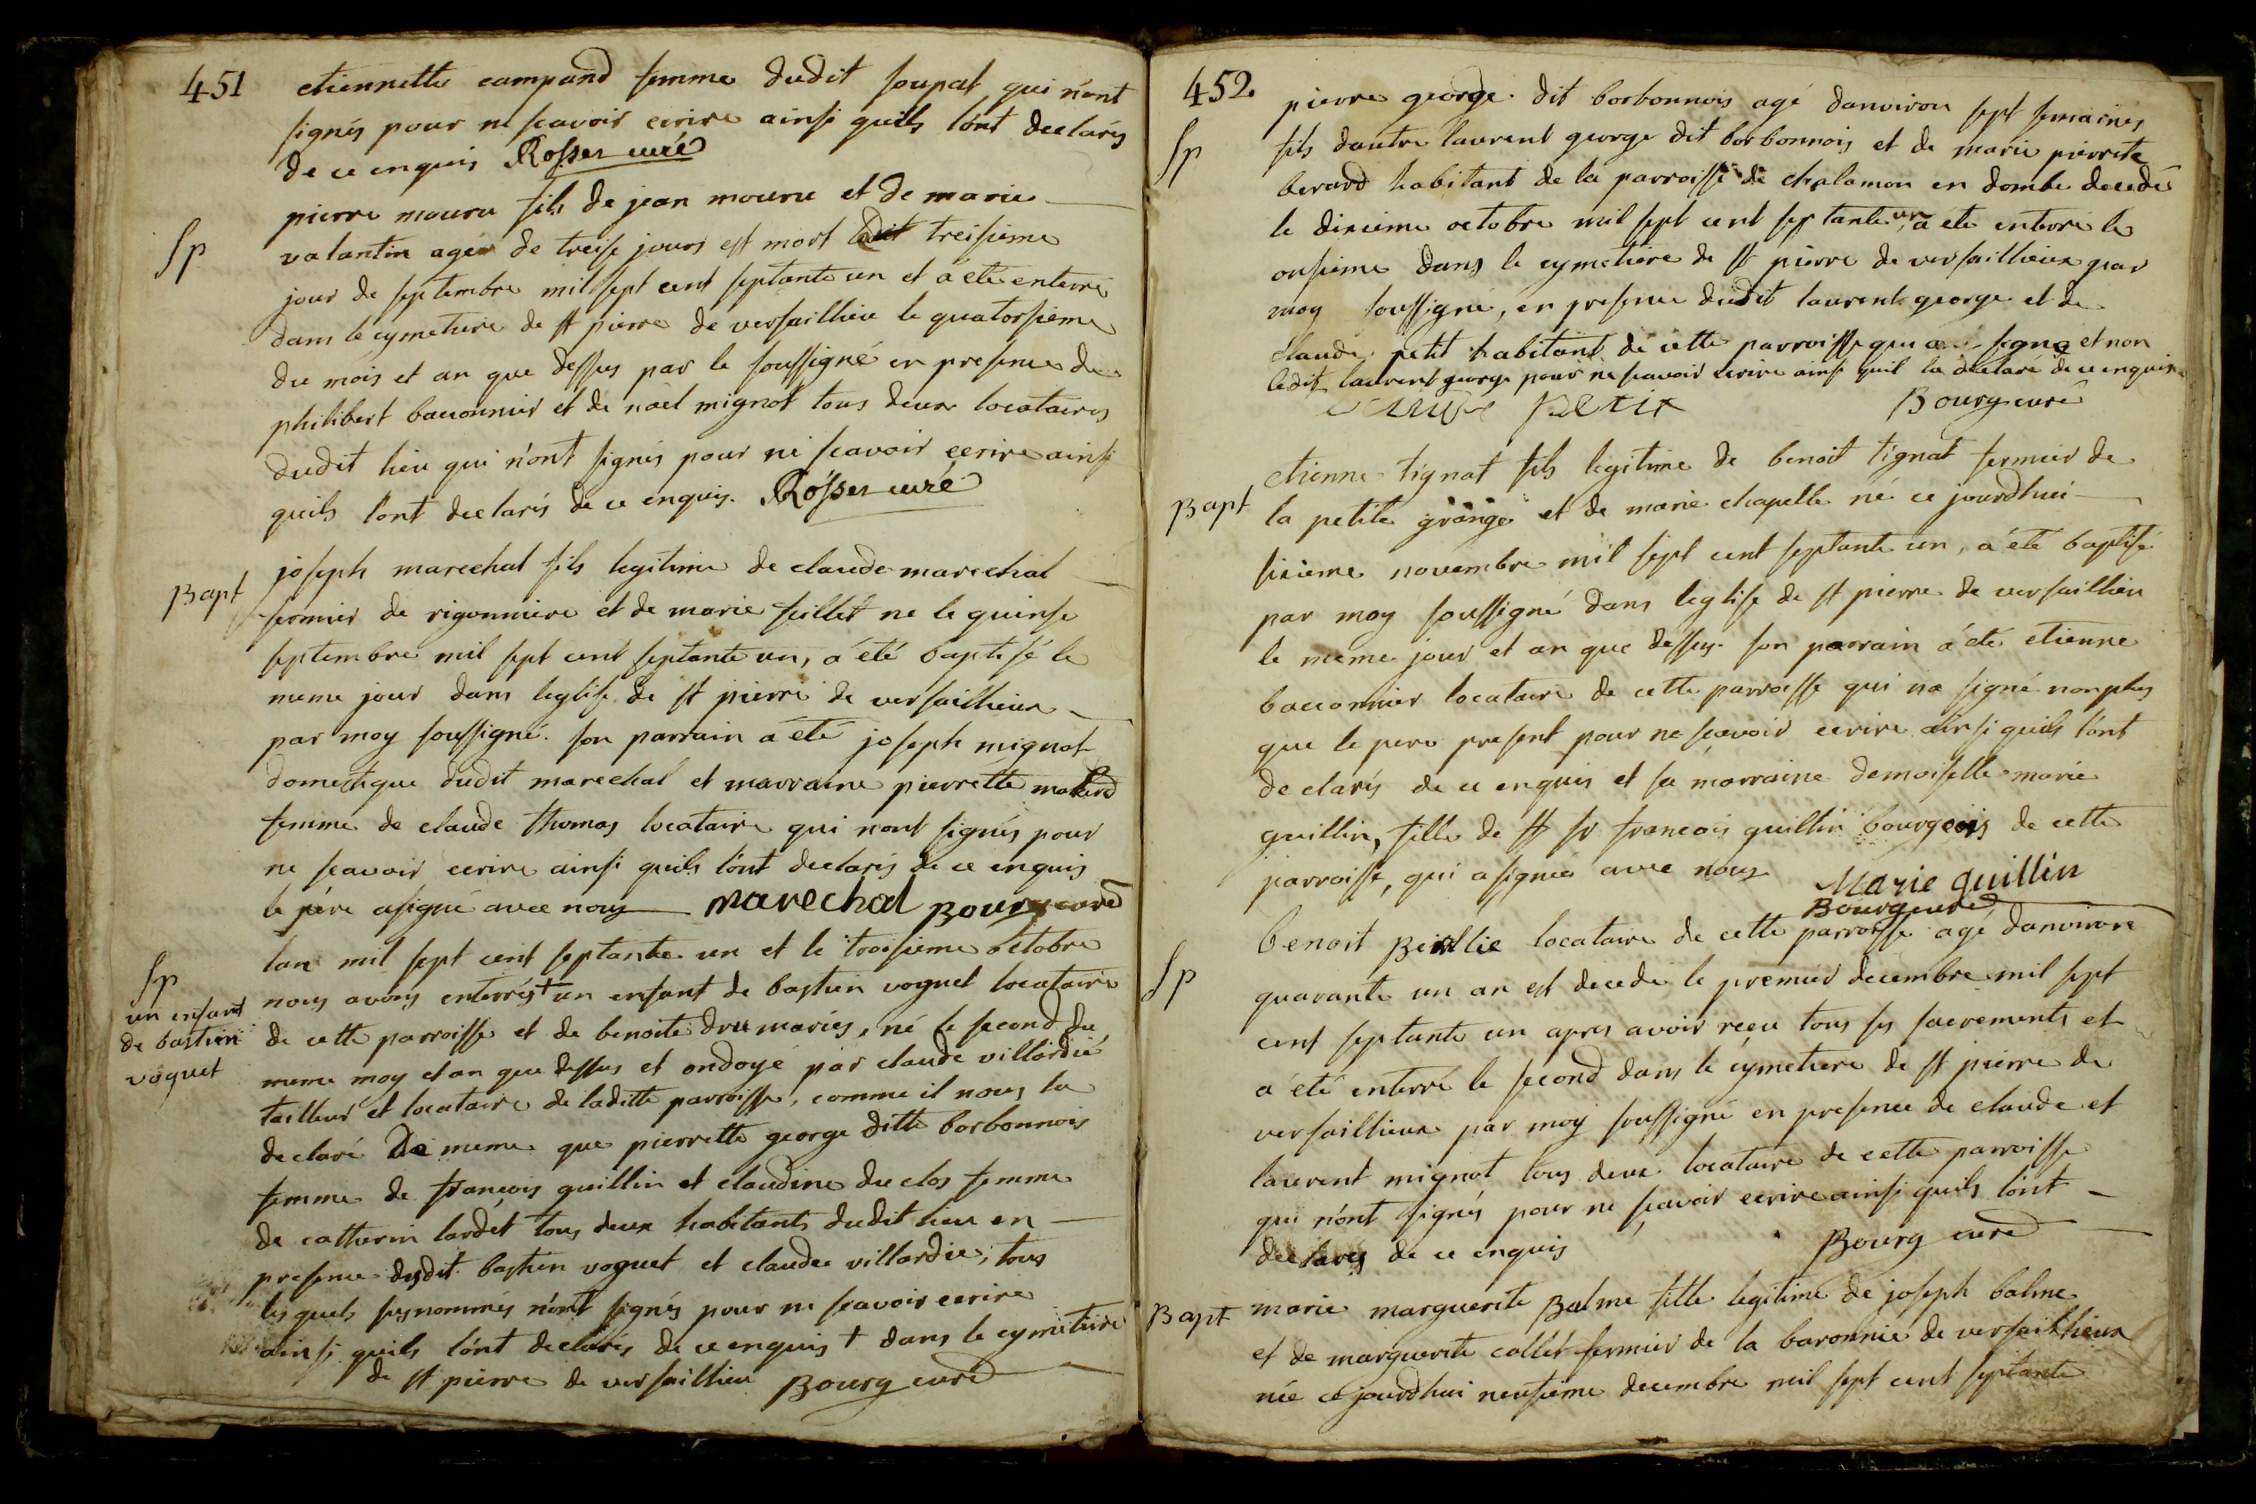 451
etiennette campand femme dudit soupat qui n'ont
signés pour ne scavoir ecrire ainsi quils l'ont declarés
de ce enquis Rosser curé
Sp
pierre mouru fils de jean mouru et de marie
valantin agé de treise jours est mort ledit treisieme
jour de septembre mil sept cent septante un et a été enterré
dans le cymetiere de st pierre de versaillieu le quatorsieme
du mois et an que dessus par le soussigné en presence de
philibert bacconnier et de noël mignot tous deux locataires
dudit lieu qui n'ont signés pour ne scavoir ecrire ainsi
quils l'ont declarés de ce enquis. Rosser curé
Bapt
joseph marechal fils legitime de claude marechal
fermier de rigonniere et de marie feillet ne le quinse
septembre mil sept cent septante un, a été baptisé le
meme jour dans leglise de st pierre de versaillieux
par moy soussigné. son parrain a été joseph mignot
domestique dudit marechal et marraine pierrette
femme de claude thomas locataire qui n'ont signés pour
ne scavoir ecrire ainsi quils l'ont declarés de ce enquis
le père a signé avec nous marechal Bourg curé
Sp
un enfant
de bastien
voguet
lan mil sept cent septante un et le troisieme octobre
nous avons enterrés + un enfant de bastien voguet locataire
de cette parroisse et de benoite dru mariés, né le second du
meme moy et an que dessus et ondoyé par claude villardié
tailleur et locataire de laditte parroisse, comme il nous la
declaré De meme que pierrette george ditte borbonnois
femme de françois guillin et claudine duclos femme
de catherin lardet tous deux habitants dudit lieu en
presence dudit bastien voguet et claude villardié, tous
lesquels susnommés n'ont signés pour ne scavoir ecrire
ainsi quils l'ont declarés de ce enquis + dans le cymetiere
de st pierre de versaillieu Bourg curé
452
Sp
pierre george dit borbonnois agé danviron sept semaines
fils dautre laurent george dit borbonnois et de marie pierrette
berard habitant de la parroisse de chalamon en dombe decedé
le dixieme octobre mil sept cent septante un, a ete enterré le
onsieme dans le cymetiere de st pierre de versaillieux par
moy soussigné, en presence dudit laurent george et de
claude petit habitant de cette parroisse qui a signé et non
ledit laurent george pour ne scavoir ecrire ainsi quil la declaré de ce enquis
Claude Petit Bourg curé
Bapt
etienne tignat fils legitime de benoit tignat fermier de
la petite grange et de marie chapelle né ce jourdhui
sixieme novembre mil sept cent septante un, a été baptisé
par moy soussigné dans leglise de st pierre de versaillieu
le meme jour et an que dessus. son parrain a été etienne
bacconnier locataire de cette parroisse qui na signé non plus
que le pere present pour ne scavoir ecrire ainsi quils l'ont
declarés de ce enquis et sa marraine demoiselle marie
guillin, fille de sr francois guillin bourgeois de cette
parroisse, qui a signé avec nous Marie guillin
Bourg curé
Sp
benoit locataire de cette parroisse agé danviron
quarante un an est decedé le premier decembre mil sept
cent septante un apres avoir reçu tous ses sacrements et
a été enterré le second dans le cymetiere de st pierre de
versaillieux par moy soussigné en presence de claude et
laurent mignot tous deux locataire de cette parroisse
qui n'ont signés pour ne scavoir ecrire ainsi quils l'ont
declarés de ce enquis Bourg curé
Bapt
marie marguerite Balme fille legitime de joseph balme
et de marguerite collet fermier de la baronnie de versaillieux
née ce jourdhui neufieme decembre mil sept cent septante